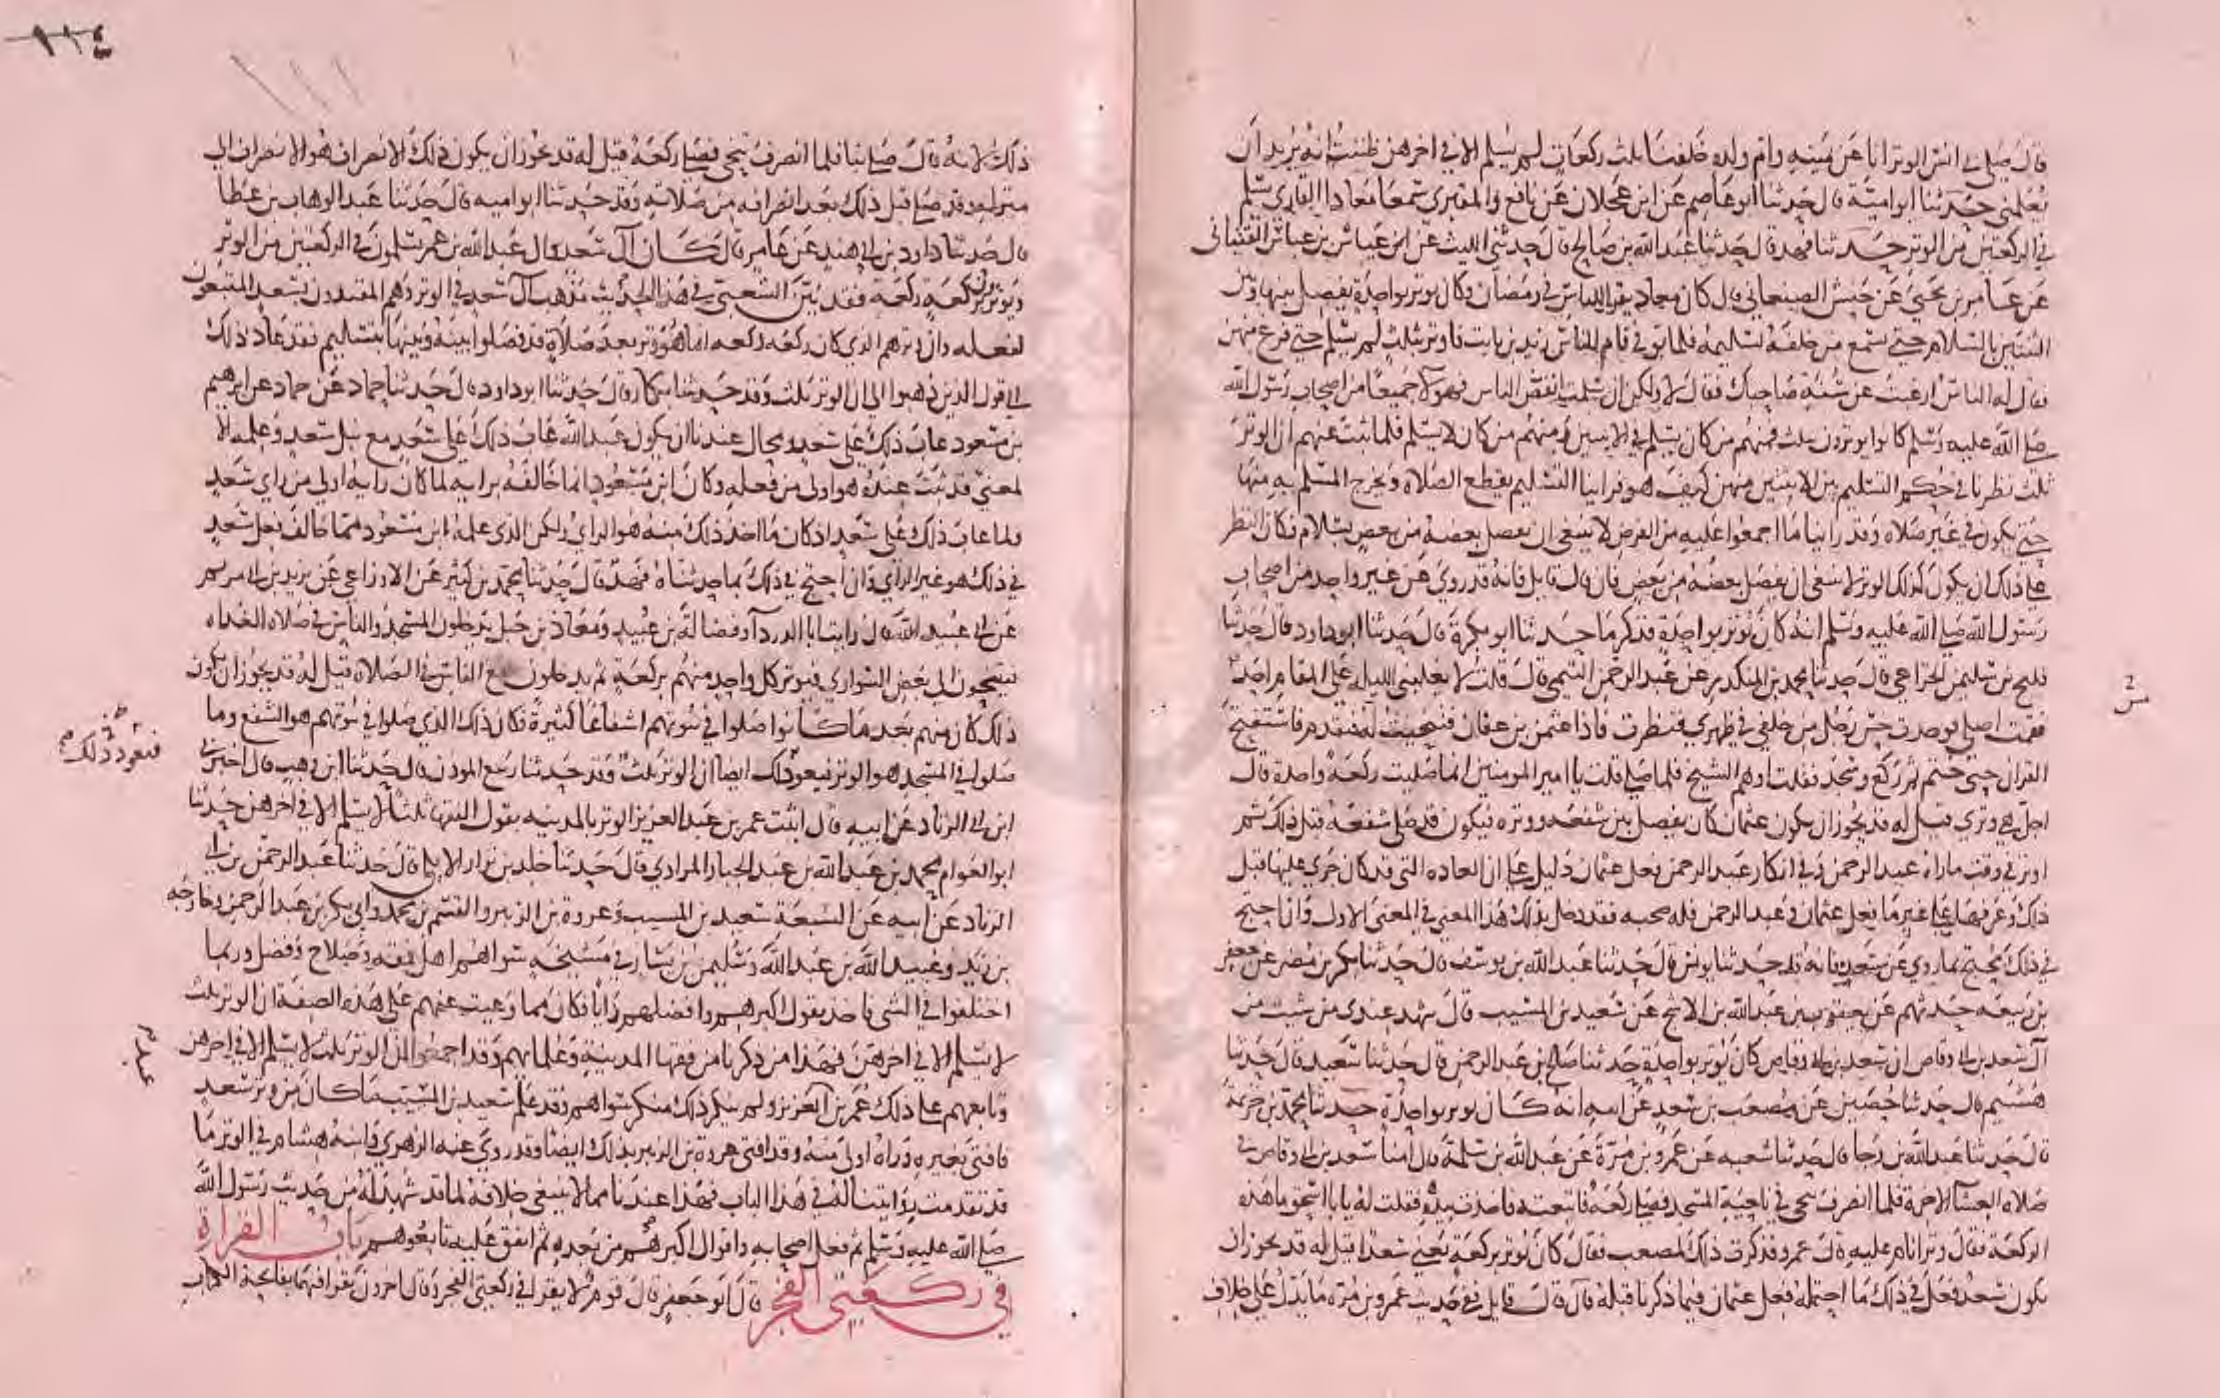 قال صلى بى انس الوتر انا عن يمينه وام ولده خلفنا ثلث ركعات لم يسلم الا فى اخرهن ظننت انه يريد ان
يعلمنى حدثنا ابو امية قال حدثنا ابو عاصم عن ابن عجلان عن نافع والمقبرى سمعا معاذا القارى يسلم
فى الركعتين من الوتر حدثنا فهد قال حدثنا عبد الله بن صالح قال حدثنى الليث عن ابن عياش بن عباس القتبانى
عن عامر بن يحيى عن حنش الصنعانى قال كان معاذ يقرا للناس فى رمضان فكان يوتر بواحدة يفصل بينها وبين
الثنتين بالسلام حتى يسمع من خلفه تسليمه فلما توفى قام للناس زيد بن ثابت فاوتر بثلث لم يسلم حتى فرغ منهن
فقال له الناس ارغبت عن سنة صاحبك فقال لا ولكن ان سلمت انفض الناس فهولا جميعا من اصحاب رسول الله
صلى الله عليه وسلم كانوا يوترون بثلث فمنهم من كان يسلم فى الاثنين ومنهم من كان لا يسلم فلما ثبت عنهم ان الوتر
ثلث نظرنا فى حكم التسليم بين الاثنتين منهن كيف هو فراينا التسليم يقطع الصلاة ويخرج المسلم به منها
حتى يكون فى غير صلاه وقد راينا ما اجمعوا عليه من الفرض لا ينبغى ان يفصل بعضه من بعض بسلام فكان النظر
على ذلك ان يكون كذلك الوتر لا ينبغى ان يفصل بعضه من بعض فان قال قايل فانه قد روى عن غير واحد من اصحاب
رسول الله صلى الله عليه وسلم انه كان يوتر بواحدة فذكر ما حدثنا ابو بكرة قال حدثنا ابو داود قال حدثنا
فليح بن سليمن الخزاعى قال حدثنا محمد بن المنكدر عن عبد الرحمن التيمى قال قلت لا يغلبنى الليلة على المقام احد
فقمت اصلى فوجدت حس رجل من خلفى فى ظهرى فنظرت فاذا عثمن بن عفان فتنحيت له فتقدم فاستفتح
القران حتى ختم ثم ركع وسجد فقلت اوهم الشيخ فلما صلى قلت يا امير المومنين انما صليت ركعة واحدة قال
اجل هى وترى قيل له قد يجوز ان يكون عثمان كان يفصل بين شفعه ووتره فيكون قد صلى شفعه قبل ذلك ثم
اوتر فى وقت ما راه عبد الرحمن وفى انكار عبد الرحمن فعل عثمان دليل على ان العاده التى قد كان جرى عليها قبل
ذلك وعرفها على غير ما فعل عثمان وعبد الرحمن فله صحبه فقد دخل بذلك هذا المعنى فى المعنى الاول وان احتج
فى ذلك محتج بما روى عن سعد فانه قد حدثنا يونس قال حدثنا عبد الله بن يوسف قال حدثنا بكر بن مضر عن جعفر
بن ربيعه حدثهم عن يعقوب بن عبد الله بن الاشج عن سعيد بن المسيب قال شهد عندى من شيت من
آل سعد بن ابى وقاص ان سعد بن ابى وقاص كان يوتر بواحدة حدثنا صالح بن عبد الرحمن قال حدثنا سعيد قال حدثنا
هشيم قال حدثنا حصين عن مصعب بن سعد عن ابيه انه كان يوتر بواحدة حدثنا محمد بن خزيمة
قال حدثنا عبد الله بن رجا قال حدثنا شعبه عن عمرو بن مرة عن عبد الله بن سلمة قال امنا سعد بن ابى وقاص فى
صلاه العشا الاخرة فلما انصرف تنحى فى ناحية المسجد فصلى ركعة فاتبعته فاخذت بيده فقلت له يا ابا اسحق ما هذه
الركعة فقال وتر انام عليه قال عمرو فذكرت ذلك لمصعب فقال كان يوتر بركعة يعنى سعدا قيل له قد يجوز ان
يكون سعد فعل فى ذلك ما احتمله فعل عثمان فيما ذكرنا قبله قال قال قايل ففى حديث عمرو بن مرة ما يدل على خلاف
ذلك لانه قال صلى بنا فلما انصرف تنحى فصلى ركعة قيل له قد يجوز ان يكون ذلك الانصراف هو الانصراف الى
منزله وقد صلى قبل ذلك بعد انصرافه من صلاته وقد حدثنا ابو اميه قال حدثنا عبد الوهاب بن عطا
قال حدثنا داود بن ابى هند عن عامر قال كان آل سعد وال عبد الله بن عمر يسلمون فى الركعتين من الوتر
ويوترون بركعة ركعة فقد بين الشعبى فى هذا الحديث مذهب آل سعد فى الوتر وهم المقتدون بسعد المتبعون
لفعله وان وترهم الذى كان ركعة ركعه انما هو وتر بعد صلاة قد فصلوا بينه وبينها بتسليم فقد عاد ذلك
الى قول الذين ذهبوا الى ان الوتر ثلث وقد حدثنا بكار قال حدثنا ابو داود قال حدثنا حماد عن حماد عن ابرهيم
بن مسعود عاب ذلك على سعد ومحال عندنا ان يكون عبد الله عاب ذلك على سعد مع نبل سعد وعلمه الا
لمعنى قد ثبت عنده هو اولى من فعله وكان ابن مسعود انما خالفه برايه لما كان رايه اولى من راى سعد
ولما عاب ذلك على سعد اذ كان ما اخذ ذلك منه هو الراى ولكن الذى علمه ابن مسعود مما خالف فعل سعد
فى ذلك هو غير الراى وان احتج فى ذلك بما حدثناه فهد قال حدثنا محمد بن كثير عن الاوزاعى عن يزيد بن ابى مريم
عن ابى عبيد الله قال رايت ابا الدردآ وفضالة بن عبيد ومعاذ بن جبل يدخلون المسجد والناس فى صلاه الغداه
فيتنحون الى بعض السوارى فيوتر كل واحد منهم بركعة ثم يدخلون مع الناس فى الصلاة قيل له قد يجوز ان يكون
ذلك كان منهم بعد ما كانوا صلوا فى بيوتهم اشفاعا كثيرة فكان ذلك الذى صلوا فى بيوتهم هو الشفع وما
صلوا فى المسجد هو الوتر فيعود ذلك ايضا ان الوتر ثلث وقد حدثنا ربيع الموذن قال حدثنا ابن وهب قال اخبرنى
فيعود ذلك
ابن ابى الزناد عن ابيه قال اثبت عمر بن عبد العزيز الوتر بالمدينه بقول الفقها ثلثا لا يسلم الا فى اخرهن حدثنا
ابو العوام محمد بن عبد الله بن عبد الجبار المرادى قال حدثنا خلد بن نزار الايلى قال حدثنا عبد الرحمن بن ابى
الزناد عن ابيه عن السبعة سعيد بن المسيب وعروة بن الزبير والقسم بن محمد وابى بكر بن عبد الرحمن وخارجه
بن زيد وعبيد الله بن عبد الله وسليمن بن يسار فى مشيخه سواهم اهل فقه وصلاح وفضل وربما
اختلفوا فى الشى فاخذ بقول اكبرهم وافضلهم رايا فكان مما وعيت عنهم على هذه الصفة ان الوتر ثلث
لا يسلم الا فى اخرهن فهذا من ذكرنا من فقها المدينة وعلمايهم وقد اجمعوا ان الوتر ثلث لا يسلم الا فى اخرهن
وتابعهم على ذلك عمر بن العزيز ولم ينكر ذلك منكر سواهم وقد علم سعيد بن المسيب ما كان من وتر سعد
فافتى بغيره وراه اولى منه وقد افتى عروة بن الزبير بذلك ايضا وقد روى عنه الزهرى وابنه هشام فى الوتر ما
قد تقدمت روايتنا له فى هذا الباب فهذا عندنا مما لا ينبغى خلافه لما قد شهد له من حديث رسول الله
صلى الله عليه وسلم ثم فعل اصحابه واقوال اكبرهم من بعده ثم اتفق عليه تابعوهم باب القراة
فى ركعتى الفجر قال ابو جعفر قال قوم لا يقرا فى ركعتى الفجر وقال اخرون يقرا فيهما بفاتحة الكتاب